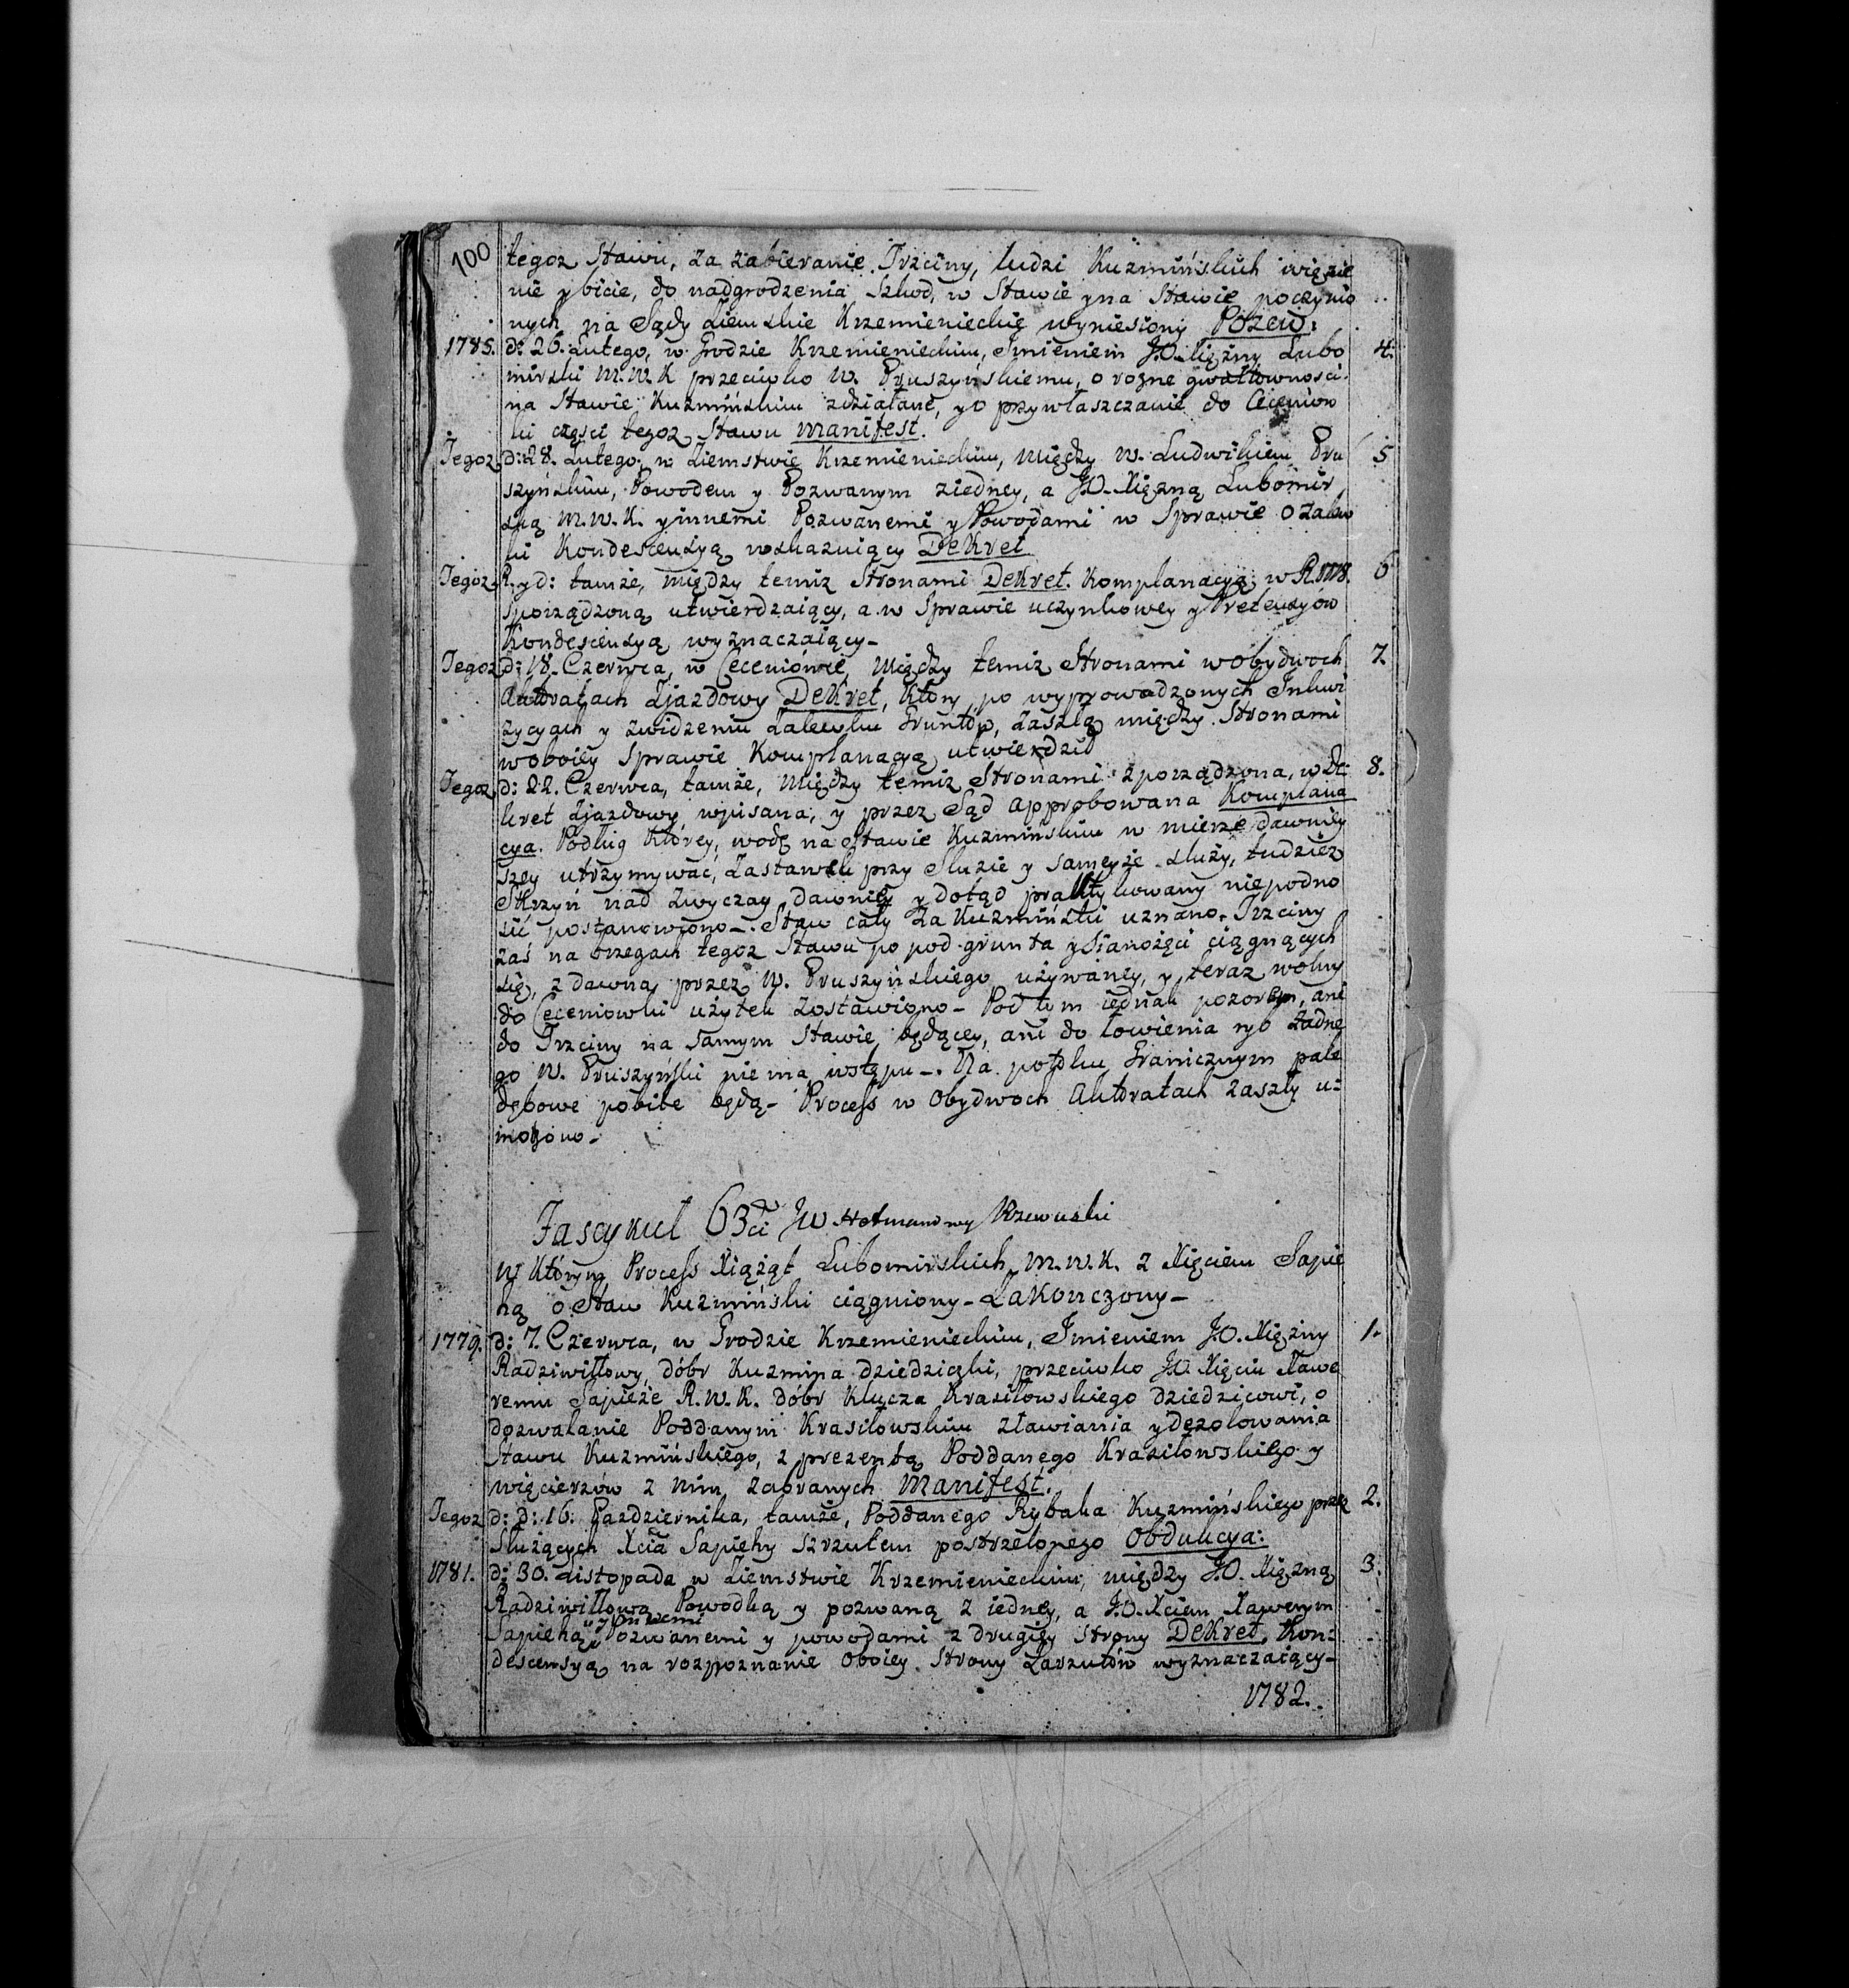 100 tegoz Stawu, za zabieranie Trzciny, ludzi Kuzmińskich więzie
nie y bicie, do nadgrodzenia Szkod, w Stawie y na Stawie poczynio
nych na Sądy Ziemskie Krzemienieckie wyniesiony Pozew:
1785. d: 26. Lutego, w Grodzie Krzemienieckim, Imieniem J.O. Xiężny Lubo 4.
mirski M.W.K przeciwko W. Pruszyńskiemu, o rozne gwałtowności
na Stawie Kuzmińskim zdziałane, y o przywłaszczanie do Ceceniow
ki części tegoz Stawu Manifest.
Tegoz d: 28. Lutego, w Ziemstwie Krzemienieckim, między W. Ludwikiem Pru 5
szyńskim, Powodem y Pozwanym z iedney, a J.O. Xiężną Lubomir
ską M.W.K. y innemi Pozwanemi y Powodami w Sprawie o Zalew
ki Kondescensyą wskazuiący Dekret
Tegoz R. y d: tamże, między temiz Stronami Dekret. Komplanacyą w R. 6
sporządzoną utwierdzaiący, a w Sprawie uczynkowey y Pretensyów
Kondescensyą wyznaczaiący -
Tegoz d: 18. Czerwca, w Ceceniówce, między temiz Stronami w obydwoch 7.
Aktoratach Zjazdowy Dekret, który po wyprowadzonych Inkwi
zycyach y zwidzeniu Zalewku Gruntów, zaszłą między Stronami
w oboiey Sprawie Komplanacyą utwierdził
Tegoz d: 22. Czerwca, tamże, między temiz Stronami sporządzona, w De 8.
kret Zjazdowy wpisana, y przez Sąd approbowana Komplana
cya. Podług którey, wodę na Stawie Kuzmińskim w mierze dawniey
szey utrzymywać, Zastawek przy Sluzie y sameyże sluzy, tudzież
Skrzyń nad zwyczay dawniey y dotąd praktykowany niepodno
sić postanowiono -. Staw cały za Kuzmiński uznano. Trzciny
zaś na brzegach tegoz Stawu po pod grunta y Sianożęci ciągnących
się, z dawna przez W. Pruszyńskiego używaney, y teraz wolny
do Ceceniowki użytek zostawiono - Pod tym iednak pozorem, ani
do Trzciny na samym Stawie będącey, ani do łowienia ryb żadne
go W. Pruszyński niema wstępu -. Na potoku Granicznym pale
dębowe pobite będą - Process w Obydwoch Aktoratach zaszły u=
morzono -
Fascykuł 63ci JW Hetmanowy Rzewuski
W którym Process Xiążąt Lubomirskich M.W.K. z Xięciem Sapie
hą o Staw Kuzmiński ciągniony - Zakonczony -
1779. d: 7. Czerwca, w Grodzie Krzemienieckim, Imieniem J.O. Xiężny 1.
Radziwiłłowy, dóbr Kuzmina dziedziczki, przeciwko J.O. Xięciu Xawe
remu Sapieże R.W.K. dóbr Klucza Krasiłowskiego dziedzicowi, o
dozwalanie Poddanym Krasiłowskim zławiania y dezolowania
Stawu Kuzmińskiego, z prezentą Poddanego Krasiłowskiego y
więcierzów z nim zabranych Manifest.
Tegoz d: d: 16. Pazdziernika, tamże, Poddanego Rybaka Kuzmińskiego przez 2.
Służących Xcia Sapiehy szrutem postrzelonego Obdukcya:
1781. d: 30. Listopada w Ziemstwie Krzemienieckim, między J.O. Xiężną 3.
Radziwiłłową Powodką y pozwaną z iedney, a J.O. Xciem Xawerym
y innemi
Sapiehą Pozwanemi y powodami z drugiey strony Dekret, Kon=
descensyą na rozpoznanie oboiey Strony Zarzutów wyznaczaiący -
1782.